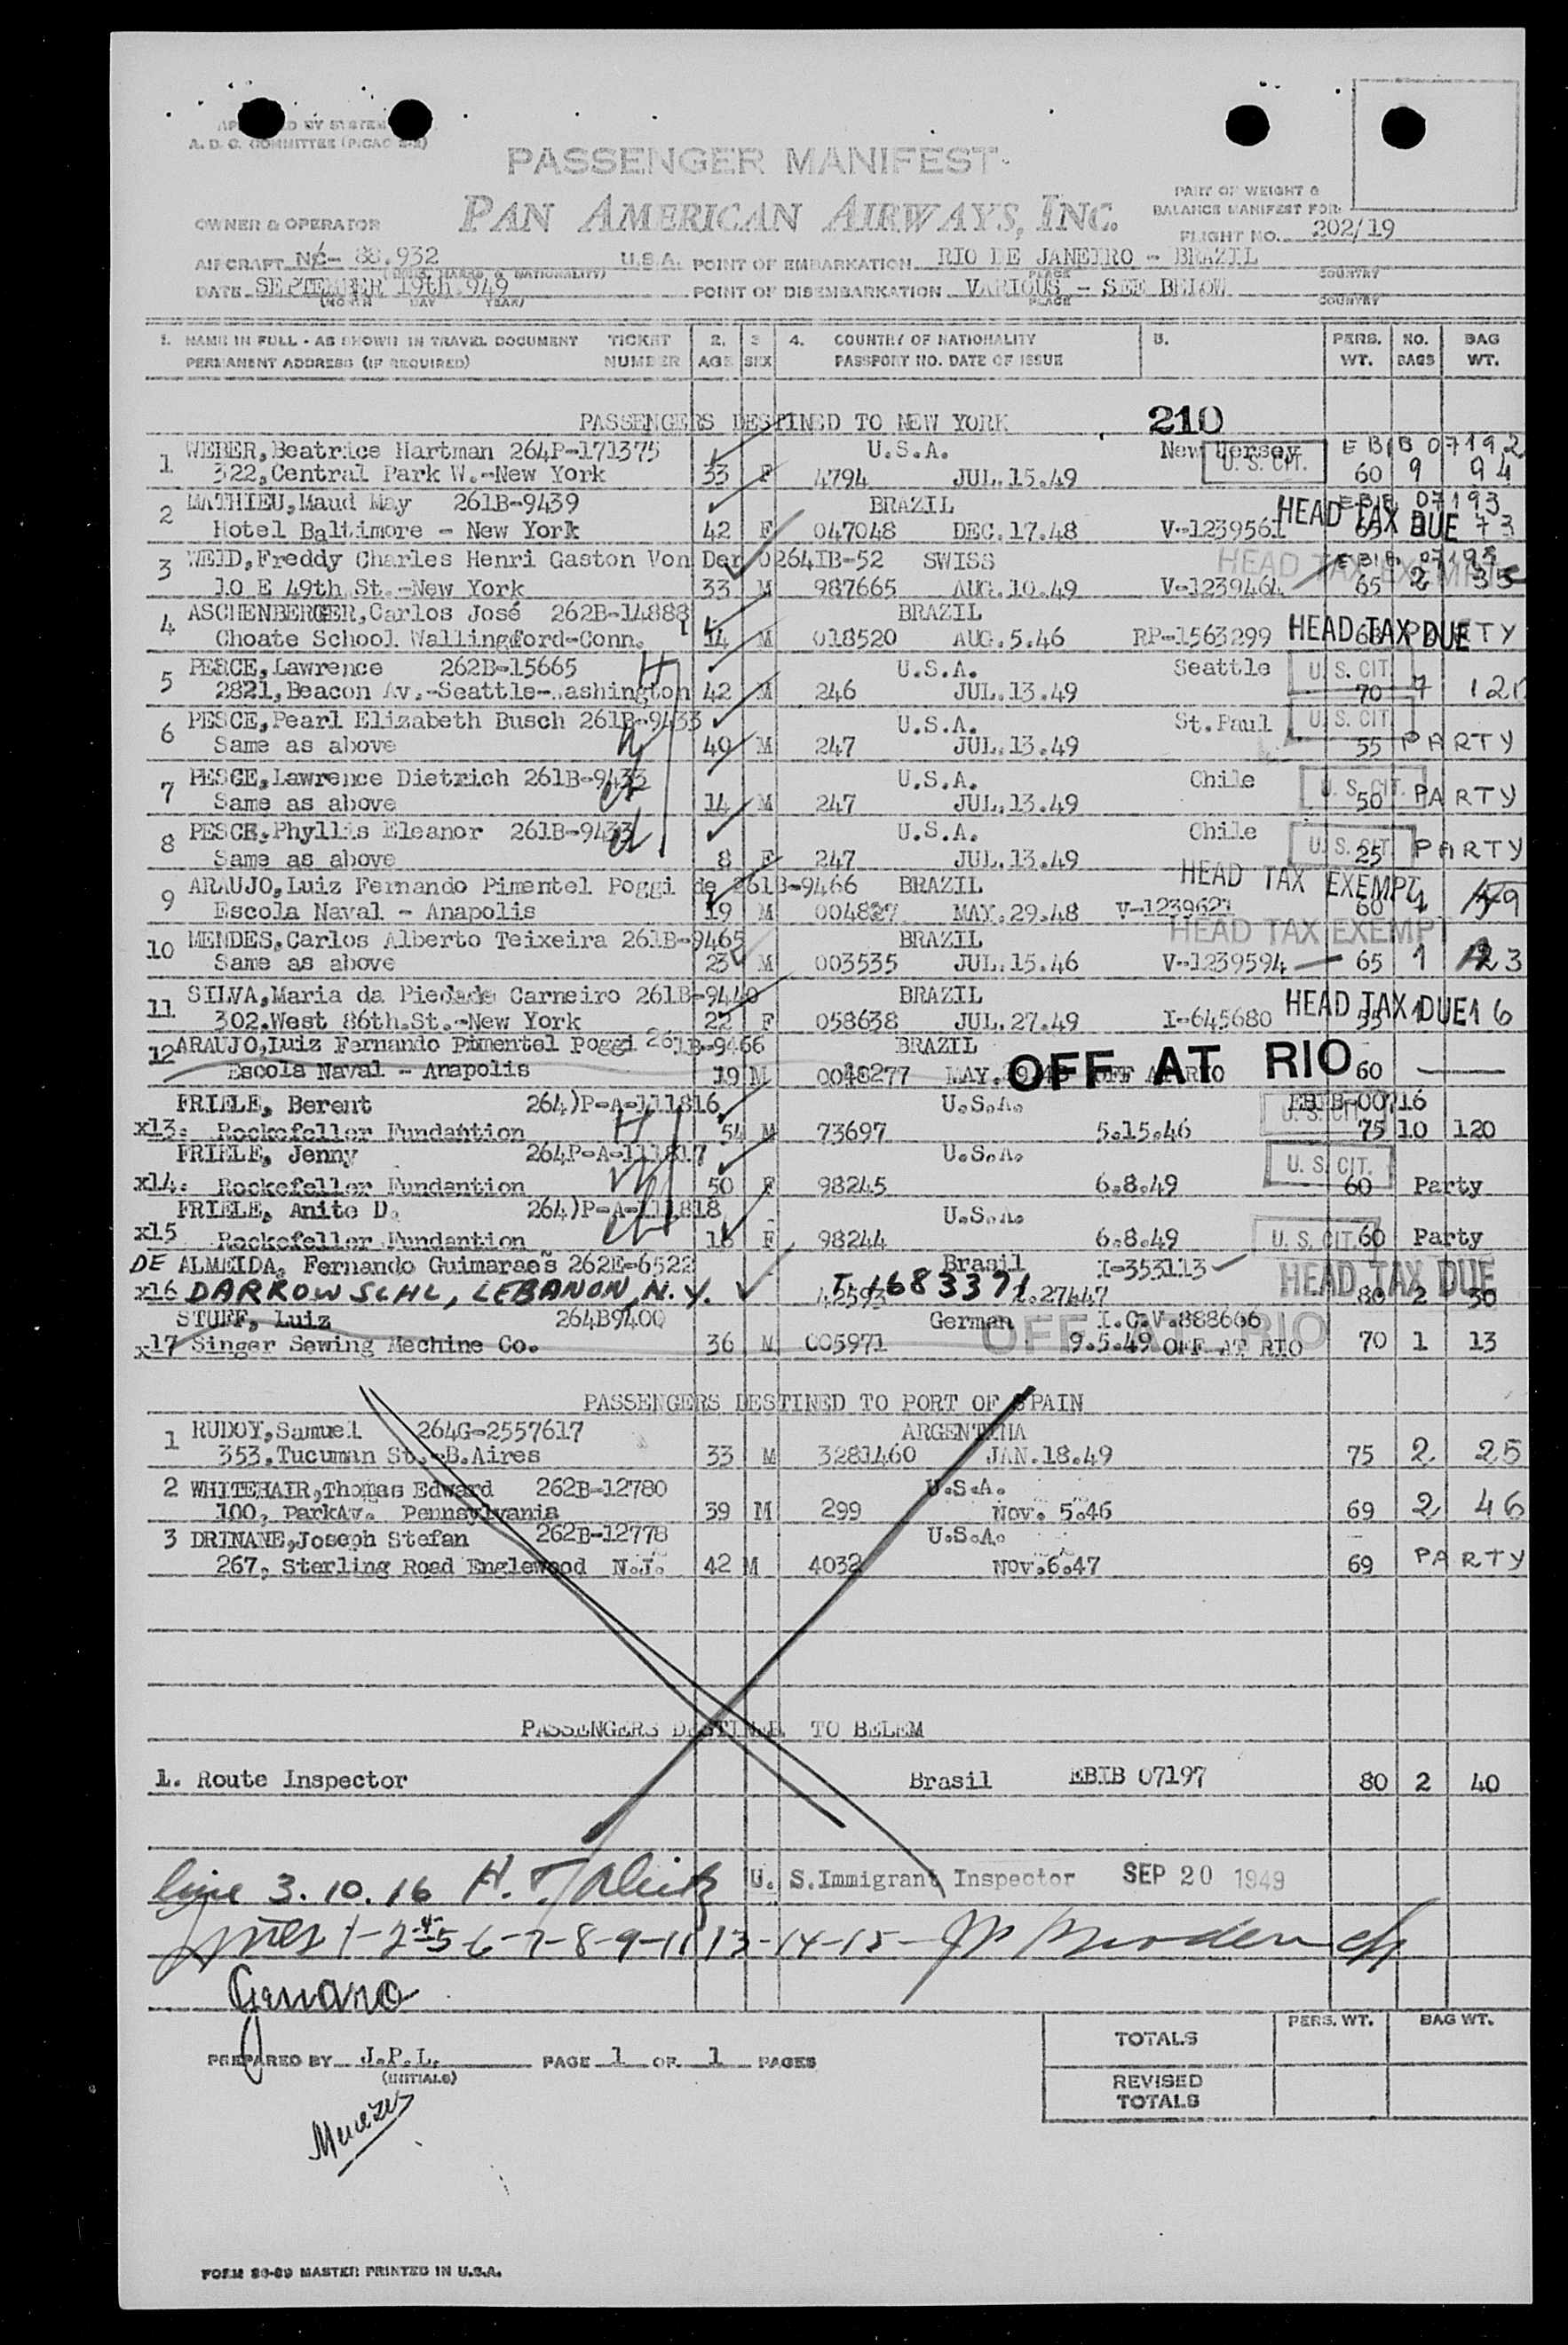 A. D. C. COMMITTEE (PICAO 2-2)
PASSENGER MANIFEST
PAN AMERICAN AIRWAYS, INC.
PART OF WEIGHT &
BALANCE MANIFEST FOR
OWNER & OPERATOR
FLIGHT NO. 202/19
AIRCRAFT NC- 88.932 U.S.A. POINT OF EMBARKATION RIO DE JANEIRO - BRAZIL
PLACE COUNTRY
DATE SEPTEMBER 19th 949 POINT OF DISEMBARKATION VARIOUS - SEE BELOW
DAY YEAR) PLACE COUNTRY
1. NAME IN FULL - AS SHOWN IN TRAVEL DOCUMENT TICKET 2. 3 4. COUNTRY OF NATIONALITY 5. PERS. NO. BAG
PERMANENT ADDRESS (IF REQUIRED) NUMBER AGE SEX PASSPORT NO. DATE OF ISSUE WT. BAGS WT.
PASSENGERS DESTINED TO NEW YORK 210
WEBER,Beatrice Hartman 264P-171375 U.S.A. New Hersey EBIB 07192
1 322,Central Park W.-New York 33 F 4794 JUL.15.49 U. S. CIT. 60 9 94
MATHIEU,Maud May 261B-9439 BRAZIL EBIB 07193
2 Hotel Baltimore - New York 42 F 047048 DEC.17.48 V-1239561 HEAD TAX DUE 65 73
3 WEID,Freddy Charles Henri Gaston Von Der 0264IB-52 SWISS HEAD TAX EXEMPT EBIB 07195
10 E 49th St.-New York 33 M 987665 AUG.10.49 V-1239464 65 2 35
4 ASCHENBERGER,Carlos José 262B-14888 BRAZIL
Choate School Wallingford-Conn. 14 M 018520 AUG.5.46 RP-1563299 HEAD TAX DUE 68 PARTY
5 PERCE,Lawrence 262B-15665 U.S.A. Seattle U. S. CIT.
2821,Beacon Av.-Seattle-.ashington 42 M 246 JUL.13.49 70 7 120
6 PESCE,Pearl Elizabeth Busch 261B-9433 U.S.A. St.Paul U. S. CIT.
Same as above 40 M 247 JUL.13.49 55 PARTY
7 PESCE,Lawrence Dietrich 261B-9433 U.S.A. Chile U. S. CIT.
Same as above 14 M 247 JUL.13.49 50 PARTY
8 PESCE,Phyllis Eleanor 261B-9433 U.S.A. Chile U. S. CIT.
Same as above 8 F 247 JUL.13.49 25 PARTY
9 ARAUJO,Luiz Fernando Pimentel Poggi de 261B-9466 BRAZIL HEAD TAX EXEMPT
Escola Naval - Anapolis 19 M 004827 MAY.29.48 V-1239621 60 1
10 MENDES,Carlos Alberto Teixeira 261B-9465 BRAZIL HEAD TAX EXEMP
Same as above 23 M 003535 JUL.15.46 V-1239594 65 1 23
11 SILVA,Maria da Piedade Carneiro 261B-9440 BRAZIL
302.West 86th.St.-New York 22 F 058638 JUL.27.49 I-645680 HEAD TAX DUE 55 1 16
12 ARAUJO,Luiz Fernando Pimentel Poggi 261B-9466 BRAZIL
Escola Naval - Anapolis 19 M 0048277 MAY. OFF AT RIO OFF AT RIO 60
FRIELE, Berent 264)P-A-111816 U.S.A. EBIB-00716
x13: Rockefeller Fundantion 54 M 73697 5.15.46 U. S. CIT. 75 10 120
FRIELE, Jenny 264P-A-111817 U.S.A.
x14: Rockefeller Fundantion 50 F 98245 6.8.49 U. S. CIT. 60 Party
FRIELE, Anito D. 264)P-A-111818 U.S.A.
x15 Rockefeller Fundantion 18 F 98244 6.8.49 U. S. CIT. 60 Party
DE ALMEIDA, Fernando Guimaraẽs 262E-6522 Brasil I-353113
x16 DARROW SCHL, LEBANON, N.Y. 42593 I 1683371 HEAD TAX DUE 80 2 30
STUFF, Luiz 264B9400 German I.C.V.888666
x17 Singer Sewing Mechine Co. 36 M 005971 9.5.49 OFF AT RIO OFF AT RIO 70 1 13
PASSENGERS DESTINED TO PORT OF SPAIN
1 RUDOY,Samuel 264G-2557617 ARGENTINA
353.Tucuman St.-B.Aires 33 M 3281460 JAN.18.49 75 2 25
2 WHITEHAIR,Thomas Edward 262B-12780 U.S.A.
100, ParkAv. Pennsylvania 39 M 299 Nov. 5.46 69 2 46
3 DRINANE,Joseph Stefan 262B-12778 U.S.A.
267, Sterling Road Englewood N.J. 42 M 4032 Nov.6.47 69 PARTY
PASSENGERS DESTINED TO BELEM
1. Route Inspector Brasil EBIB 07197 80 2 40
line 3.10.16 H. U. S. Immigrant Inspector SEP 20 1949
Lines 1-2-4-5-6-7-8-9-11 13-14-15-
Genaro
PREPARED BY J.P.L. PAGE 1 OF 1 PAGES
(INITIALS)
TOTALS PERS. WT. BAG WT.
REVISED
TOTALS
Menezes
FORM 86-89 MASTER PRINTED IN U.S.A.